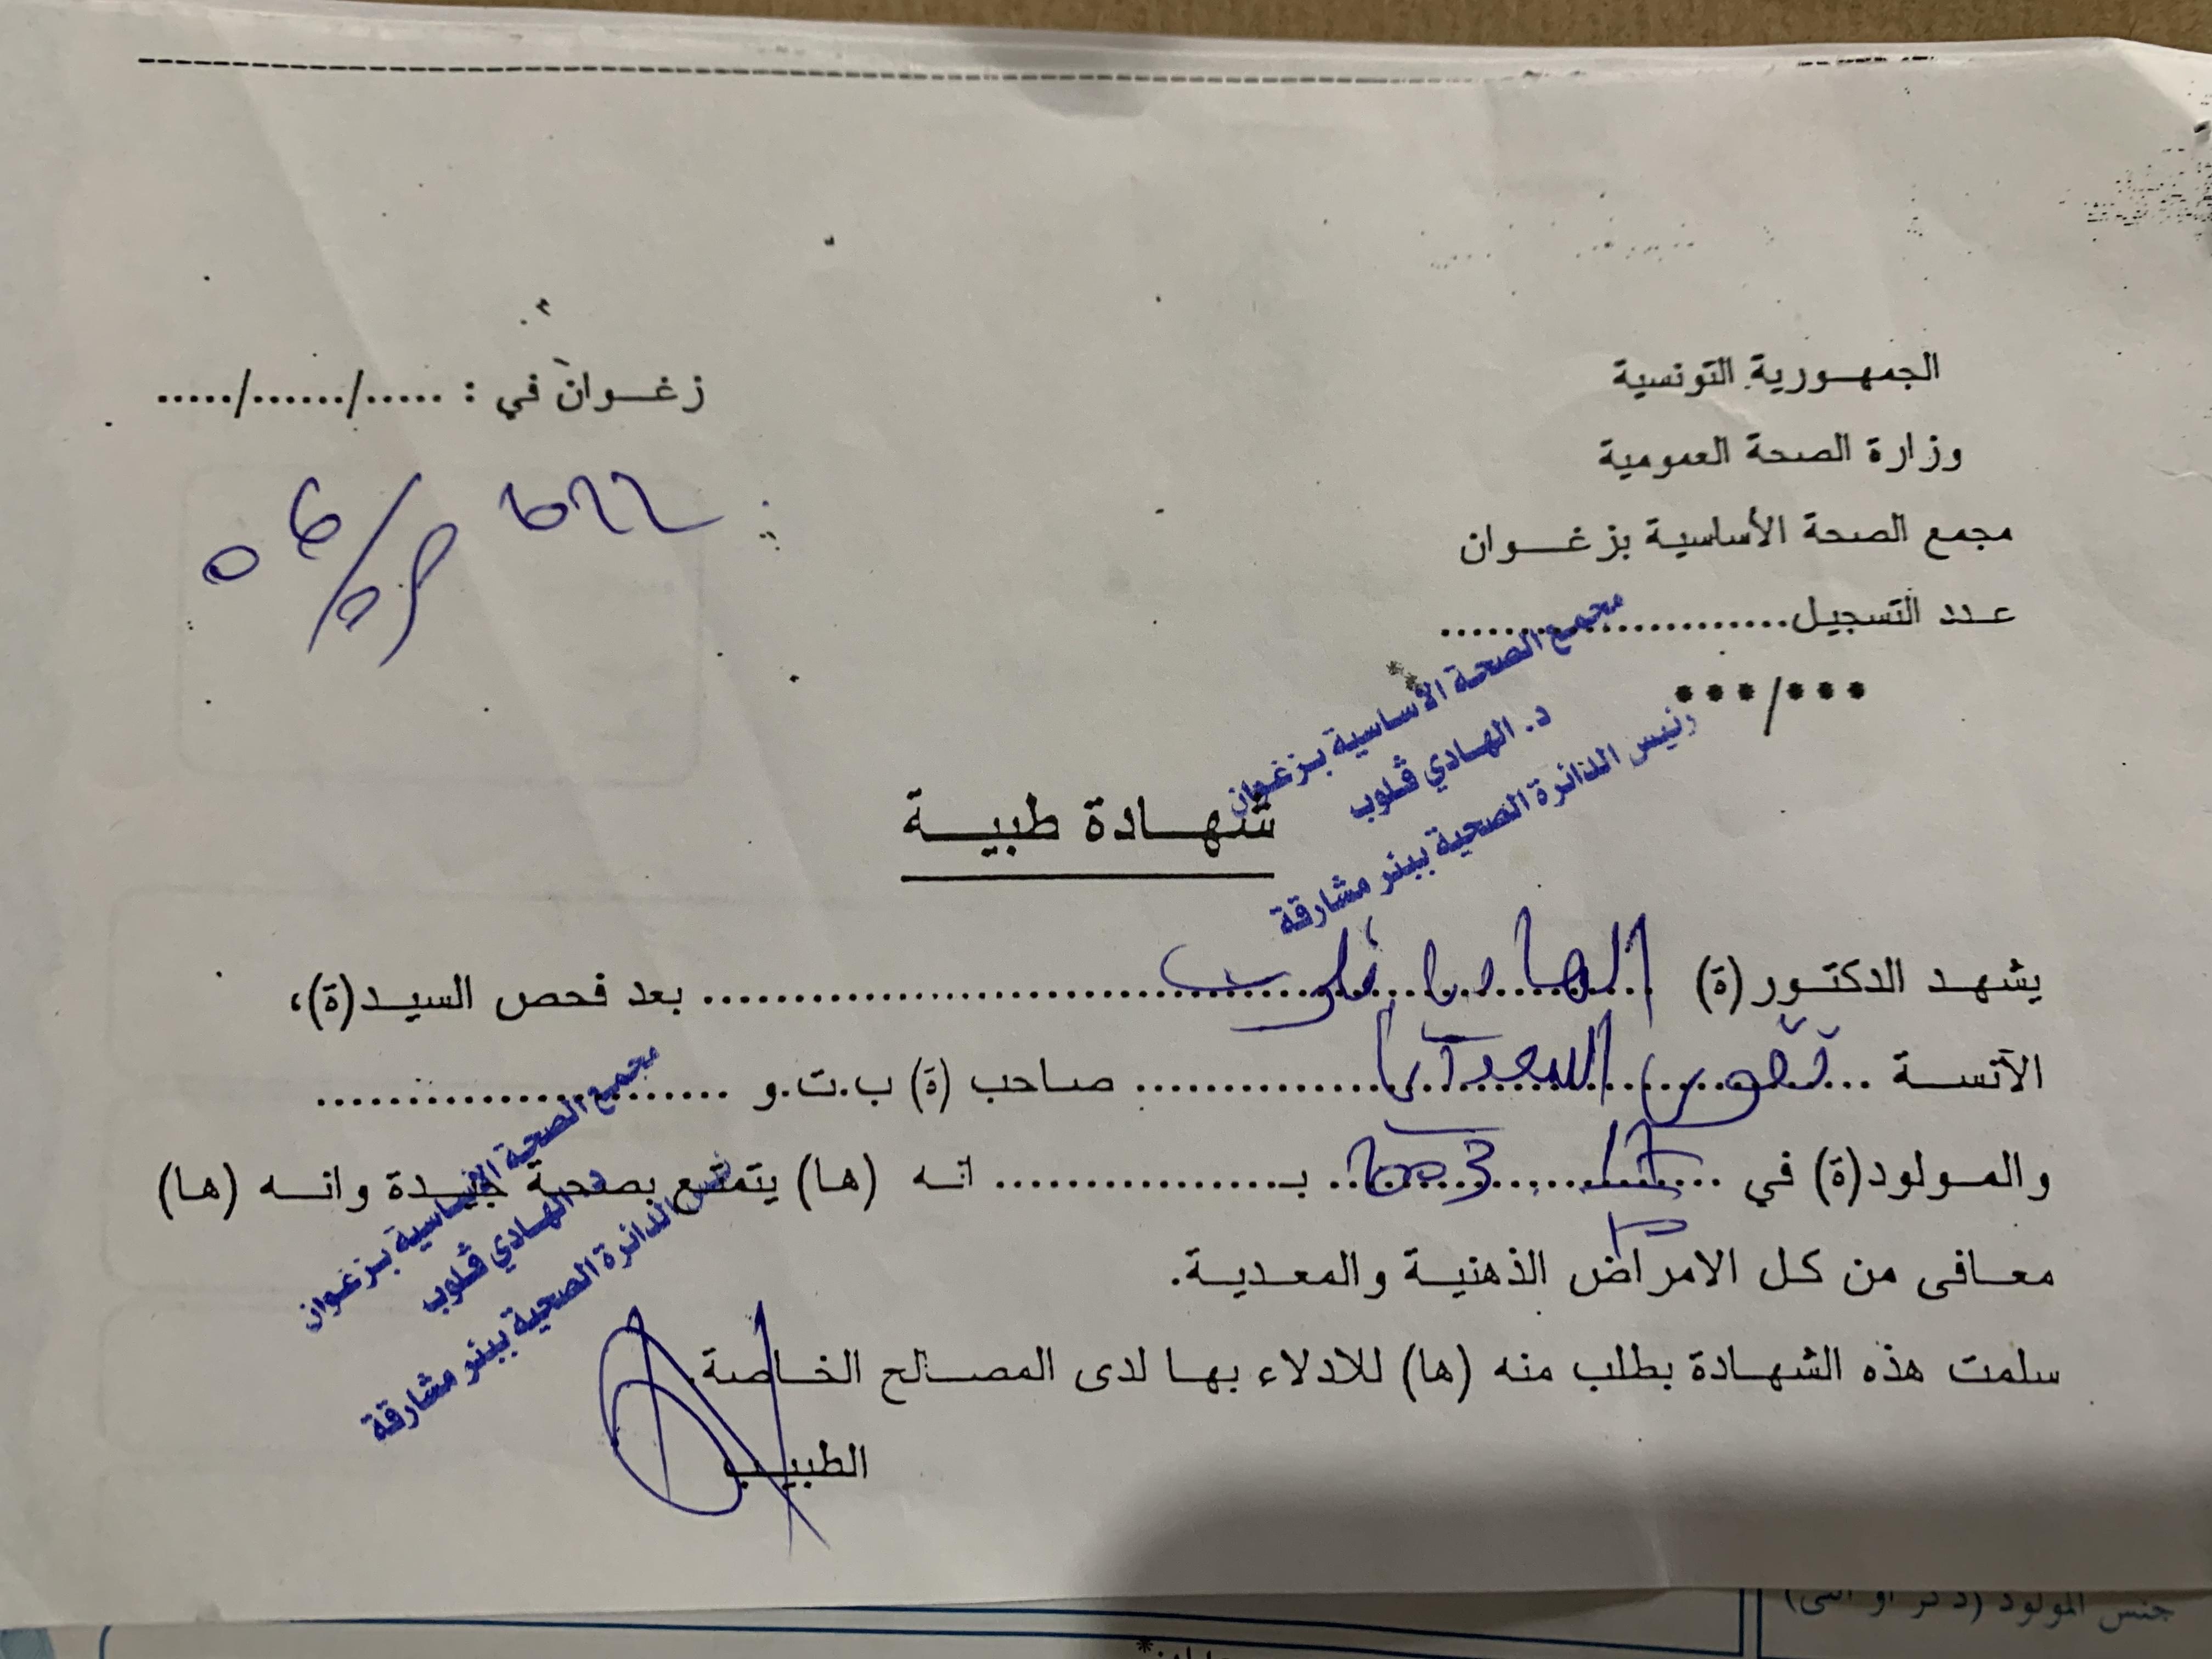 الجمهورية التونسية
وزارة الصحة العمومية
مجمع الصحة الأساسية بزغوان
عدد التسجيل......................
***/***
زغوان في : ...../....../.....
مجمع الصحة الأساسية بزغوان
د. الهادي ڨلوب
رئيس الدائرة الصحية ببئر مشارقة
شهادة طبية
يشهد الدكتور(ة) الهادي ڨلوب بعد فحص السيد(ة)،
الآنسة السعداني صاحب (ة) ب.ت.و .......................
والمولود(ة) في 2003 بـ................ انه (ها) يتمتع بصحة جيدة وانه (ها)
معافى من كل الامراض الذهنية والمعدية.
سلمت هذه الشهادة بطلب منه (ها) للادلاء بها لدى المصالح الخاصة.
الطبيب
مجمع الصحة الأساسية بزغوان
د. الهادي ڨلوب
رئيس الدائرة الصحية ببئر مشارقة
جنس المولود (ذكر أو أنثى)